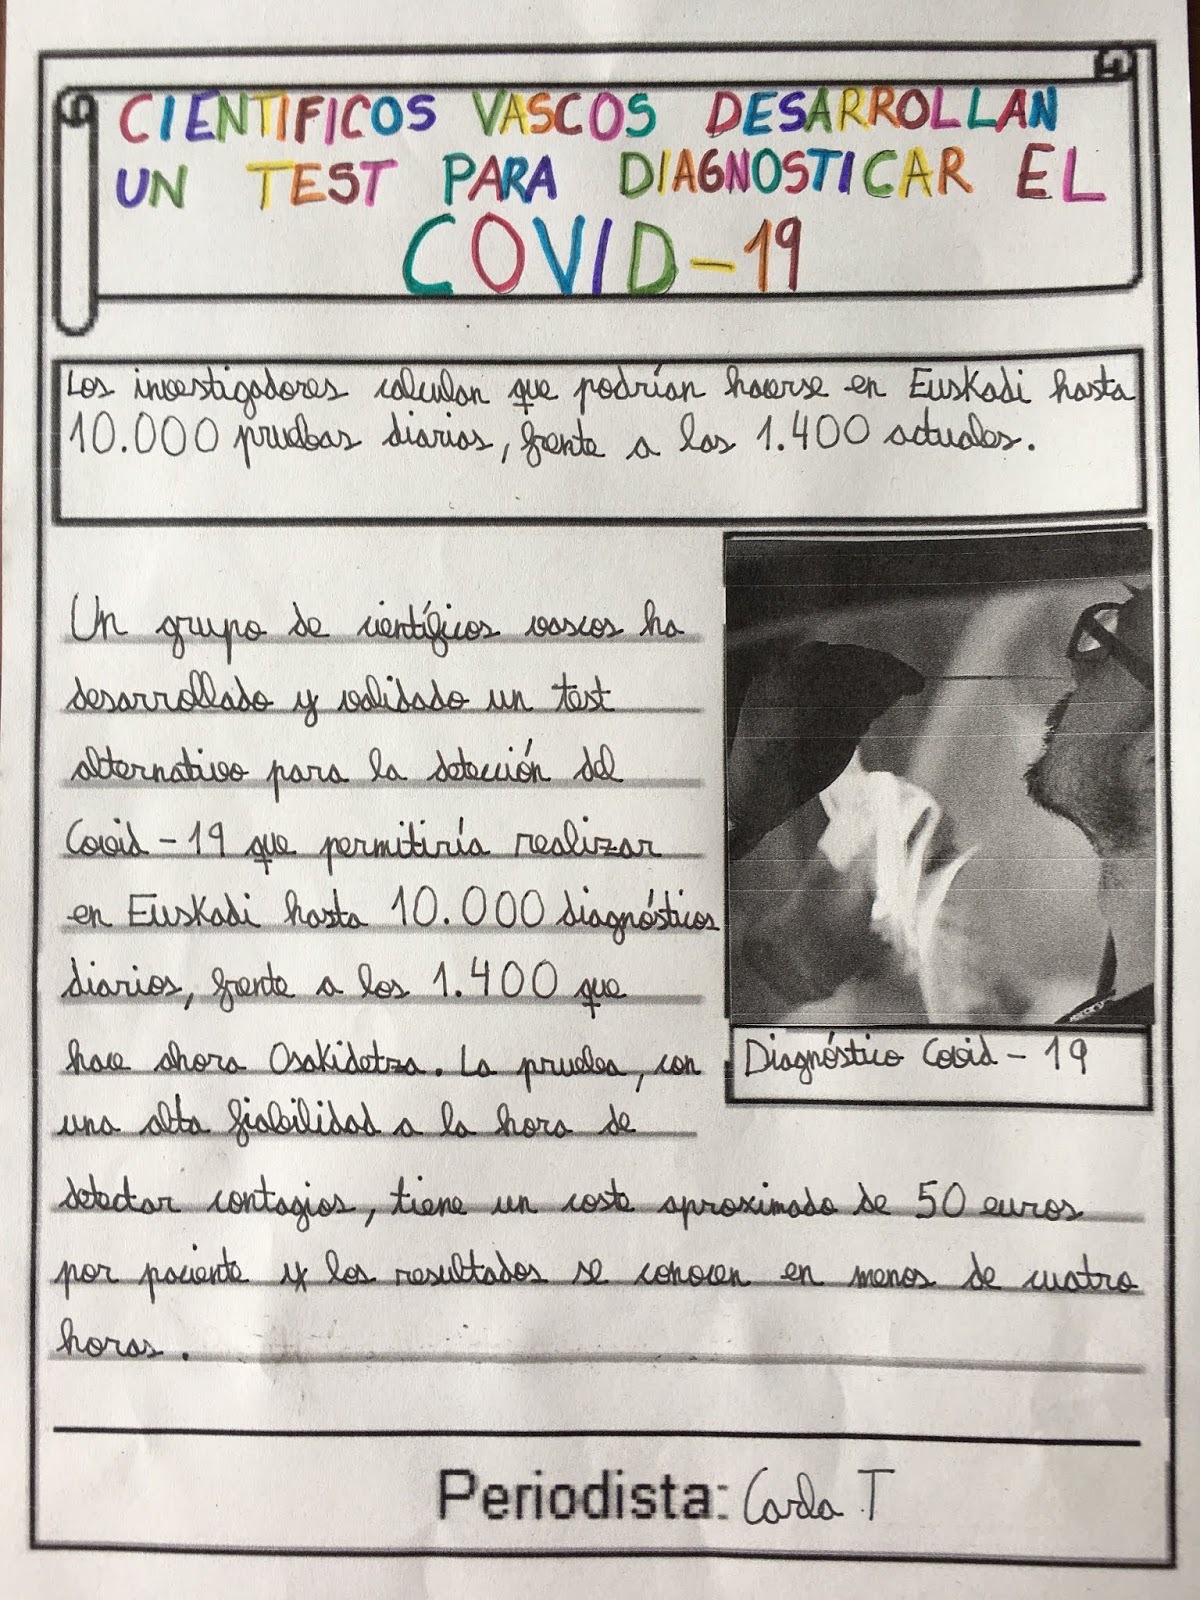 CIENTIFICOS VASCOS DESARROLLAN
UN TEST PARA DIAGNOSTICAR EL
COVID-19
Los investigadores calculan que podrían hacerse en Euskadi hasta
10.000 pruebas diarias, frente a las 1.400 actuales.
Un grupo de científicos vascos ha
desarrollado y validado un test
alternativo para la detección del
Covid-19 que permitiría realizar
en Euskadi hasta 10.000 diagnósticos
diarios, frente a los 1.400 que
hace ahora Osakidetza. La prueba, con
una alta fiabilidad a la hora de
detectar contagios, tiene un coste aproximado de 50 euros
por paciente y los resultados se conocen en menos de cuatro
horas.
Diagnóstico Covid-19
Periodista: Carla T